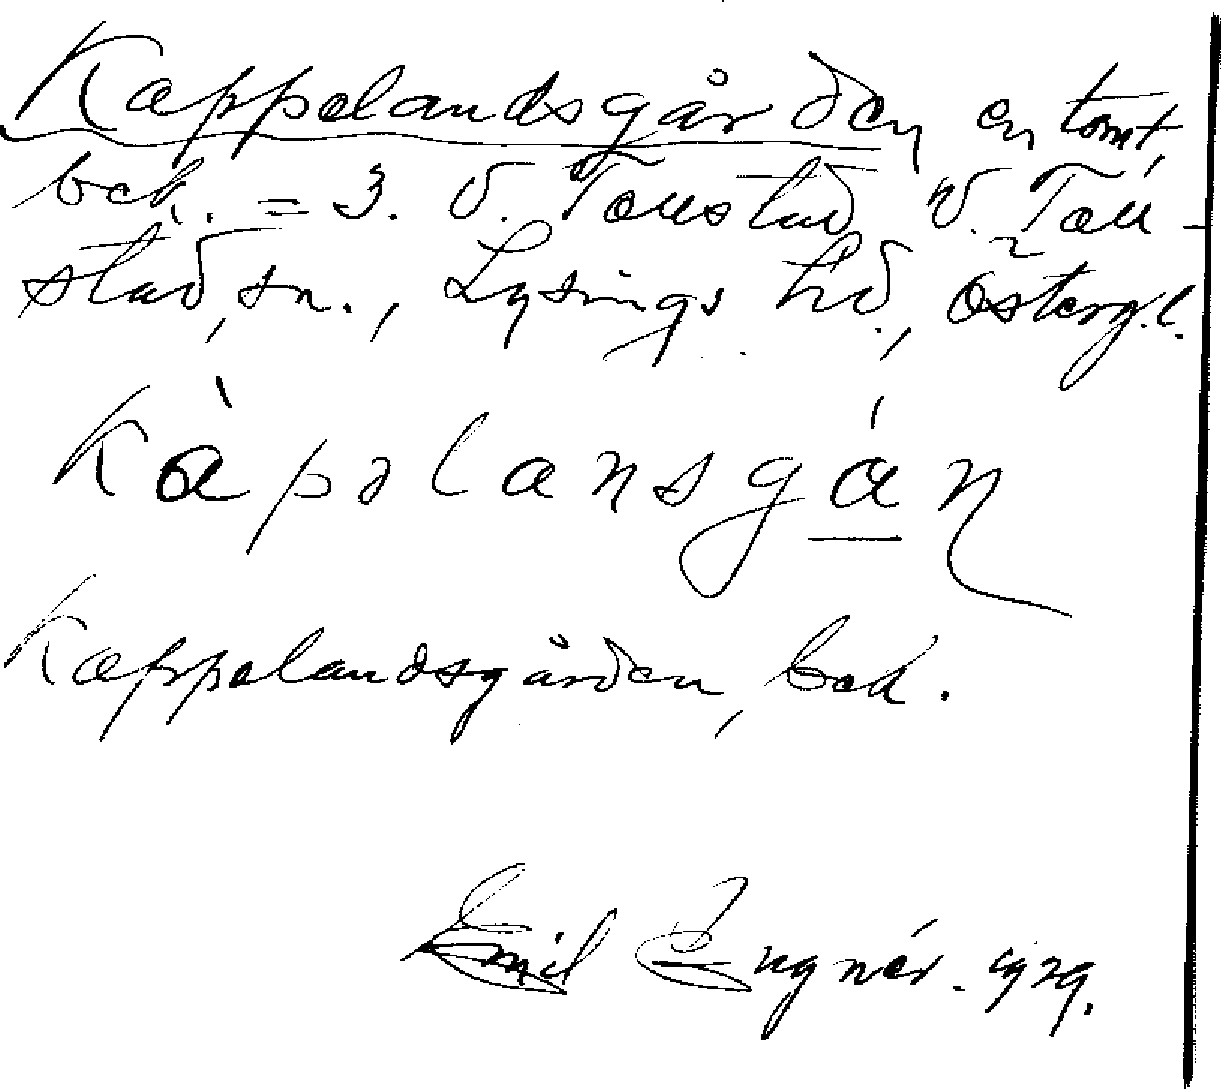 Kappelandsgården, en tomt,
bek. = 3. V. Tollstad, V. Toll-
stad, sn., Lysings hd., Östergl.
kàpəlansgán
Kappelandsgården, bek.
Emil Engnér. 1929.